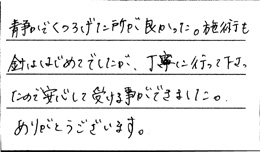 静かでくつろげた所が良かった。施術も
針ははじめてでしたが、丁寧に行って下さっ
たので安心して受ける事ができました。
ありがとうございます。